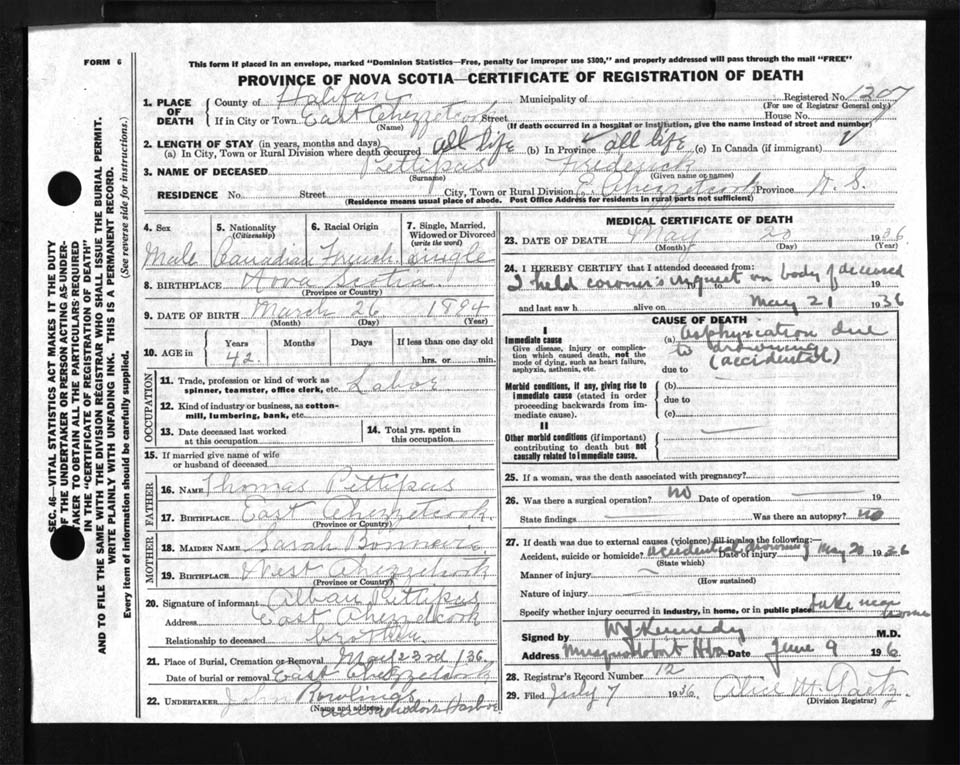 FORM 6
This form if placed in an envelope, marked "Dominion Statistics—Free, penalty for improper use $300," and properly addressed will pass through the mail "FREE"
PROVINCE OF NOVA SCOTIA—CERTIFICATE OF REGISTRATION OF DEATH
1. PLACE OF DEATH
County of Halifax Municipality of Registered No. 1307
(For use of Registrar General only)
If in City or Town East Chezzetcook Street House No.
(Name) (If death occurred in a hospital or institution, give the name instead of street and number)
2. LENGTH OF STAY (in years, months and days)
(a) In City, Town or Rural Division where death occurred all life (b) In Province all life (c) In Canada (if immigrant)
3. NAME OF DECEASED Pettipas Frederick
(Surname) (Given name or names)
RESIDENCE No. Street City, Town or Rural Division E. Chezzetcook Province N. S.
(Residence means usual place of abode. Post Office Address for residents in rural parts not sufficient)
4. Sex 5. Nationality (Citizenship) 6. Racial Origin 7. Single, Married, Widowed or Divorced (write the word)
Male Canadian French Single
8. BIRTHPLACE Nova Scotia
(Province or Country)
9. DATE OF BIRTH March 26 1894
(Month) (Day) (Year)
10. AGE in Years Months Days If less than one day old
42 hrs. or min.
OCCUPATION
11. Trade, profession or kind of work as spinner, teamster, office clerk, etc. Labor
12. Kind of industry or business, as cotton-mill, lumbering, bank, etc.
13. Date deceased last worked at this occupation
14. Total yrs. spent in this occupation
15. If married give name of wife or husband of deceased
FATHER
16. NAME Thomas Pettipas
17. BIRTHPLACE East Chezzetcook
(Province or Country)
MOTHER
18. MAIDEN NAME Sarah
19. BIRTHPLACE West Chezzetcook
(Province or Country)
20. Signature of informant Alban Pettipas
Address East Chezzetcook
Relationship to deceased brother
21. Place of Burial, Cremation or Removal May 23rd/36
Date of burial or removal East Chezzetcook
22. UNDERTAKER John Rowlings
(Name and address) Musquodoboit Harbor
MEDICAL CERTIFICATE OF DEATH
23. DATE OF DEATH May 20 1936
(Month) (Day) (Year)
24. I HEREBY CERTIFY that I attended deceased from:
I held coroner's inquest on body of deceased
and last saw h alive on May 21 1936
CAUSE OF DEATH
I
Immediate cause
Give disease, injury or complication which caused death, not the mode of dying, such as heart failure, asphyxia, asthenia, etc.
(a) asphyxication due
to drowning
(accidental)
due to
Morbid conditions, if any, giving rise to immediate cause (stated in order proceeding backwards from immediate cause).
(b)
due to
(c)
II
Other morbid conditions (if important) contributing to death but not causally related to immediate cause.
25. If a woman, was the death associated with pregnancy?
26. Was there a surgical operation? no Date of operation 19
State findings Was there an autopsy? no
27. If death was due to external causes (violence) fill in also the following:—
Accident, suicide or homicide? accidental drowning Date of injury May 20 1936
(State which)
Manner of injury
(How sustained)
Nature of injury
Specify whether injury occurred in industry, in home, or in public place lake near
home
Signed by W J Kennedy M.D.
Address Musquodoboit Hbr Date June 9 1936
28. Registrar's Record Number 12
29. Filed July 7 1936. M. Gaetz
(Division Registrar)
SEC. 46—VITAL STATISTICS ACT MAKES IT THE DUTY
OF THE UNDERTAKER OR PERSON ACTING AS UNDER-
TAKER TO OBTAIN ALL THE PARTICULARS REQUIRED
IN THE "CERTIFICATE OF REGISTRATION OF DEATH"
AND TO FILE THE SAME WITH THE DIVISION REGISTRAR WHO SHALL ISSUE THE BURIAL PERMIT.
WRITE PLAINLY WITH UNFADING INK. THIS IS A PERMANENT RECORD.
Every item of information should be carefully supplied. (See reverse side for instructions.)